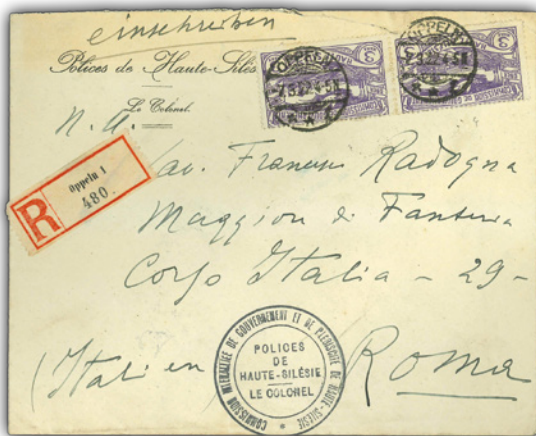 einschreiben
Polices de Haute-Silésie
Le Colonel.
OPPELN
7.3.22.4-5N
OPPELN
7.3.22.4-5N
3
3
N. U.
Cav. Francesco Radogna
Maggiore di Fanteria
Corso Italia - 29 -
(Italien) Roma
R
Oppeln 1
480.
COMMISSION INTERALLIÉE DE GOUVERNEMENT ET DE PLÉBISCITE DE HAUTE-SILÉSIE
POLICES
DE
HAUTE-SILÉSIE
LE COLONEL